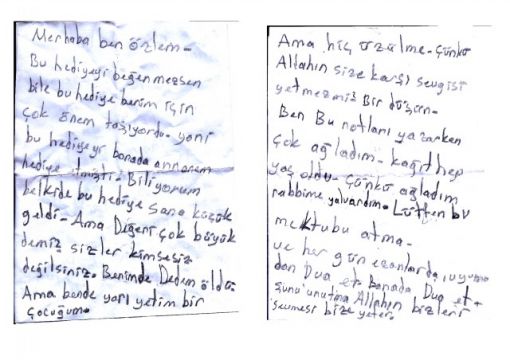 Merhaba ben özlem-
Bu hediyeyi beğenmezsen
bile bu hediye benim için
çok önem taşıyordu- yani
bu hediyeyi banada annanem
hediye etmişti- Biliyorum
belkide bu hediye sana küçük
geldi- Ama Değeri çok büyük
demiz sizler kimsesiz
değilsiniz. Benimde Dedem öldü.
Ama bende yarı yetim bir
çocuğum.
Ama hiç üzülme- çünkü
Allahın size karşı sevgisi
yetmezmi? Bir düşün-
Ben Bu notlanı yazarken
çok ağladım- kağıt hep
yaş oldu- çünkü ağladım
rabbime yalvardım. Lütfen bu
mektubu atma-
ve her gün ezanlarda, uyuma
dan Dua et Banada Dua et-
şunu unutma Allahın bizleri
sevmesi bize yeter.